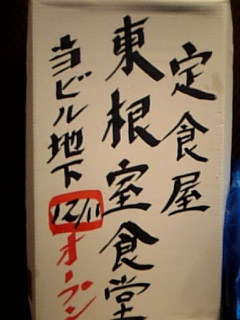 定食屋
東根室食堂
当ビル地下
12/11オープン